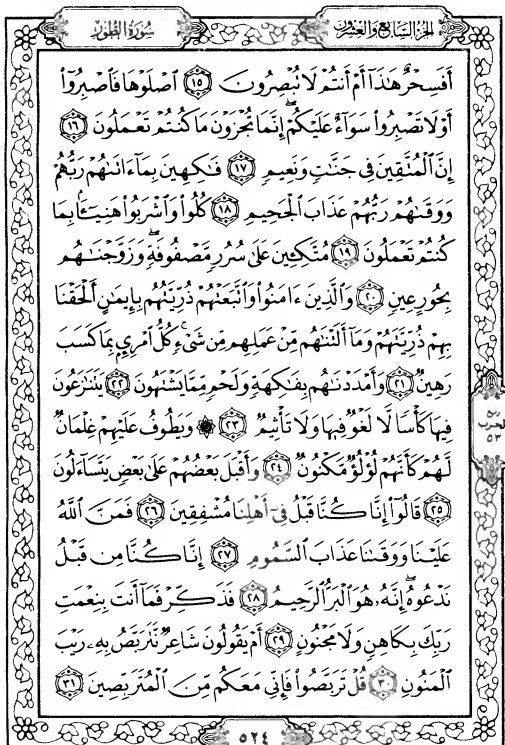 سُورَةُ الطُّورِ
الجُزءُ السَّابِعُ وَالعِشْرُونَ
أَفَسِحْرٌ هَٰذَآ أَمْ أَنتُمْ لَا تُبْصِرُونَ ١٥ ٱصْلَوْهَا فَٱصْبِرُوٓا۟
أَوْ لَا تَصْبِرُوا۟ سَوَآءٌ عَلَيْكُمْ ۖ إِنَّمَا تُجْزَوْنَ مَا كُنتُمْ تَعْمَلُونَ ١٦
إِنَّ ٱلْمُتَّقِينَ فِى جَنَّٰتٍ وَنَعِيمٍ ١٧ فَٰكِهِينَ بِمَآ ءَاتَىٰهُمْ رَبُّهُمْ
وَوَقَىٰهُمْ رَبُّهُمْ عَذَابَ ٱلْجَحِيمِ ١٨ كُلُوا۟ وَٱشْرَبُوا۟ هَنِيٓـًٔۢا بِمَا
كُنتُمْ تَعْمَلُونَ ١٩ مُتَّكِـِٔينَ عَلَىٰ سُرُرٍ مَّصْفُوفَةٍ ۖ وَزَوَّجْنَٰهُم
بِحُورٍ عِينٍ ٢٠ وَٱلَّذِينَ ءَامَنُوا۟ وَٱتَّبَعَتْهُمْ ذُرِّيَّتُهُم بِإِيمَٰنٍ أَلْحَقْنَا
بِهِمْ ذُرِّيَّتَهُمْ وَمَآ أَلَتْنَٰهُم مِّنْ عَمَلِهِم مِّن شَىْءٍ ۚ كُلُّ ٱمْرِئٍۭ بِمَا كَسَبَ
رَهِينٌ ٢١ وَأَمْدَدْنَٰهُم بِفَٰكِهَةٍ وَلَحْمٍ مِّمَّا يَشْتَهُونَ ٢٢ يَتَنَٰزَعُونَ
فِيهَا كَأْسًا لَّا لَغْوٌ فِيهَا وَلَا تَأْثِيمٌ ٢٣ ۞ وَيَطُوفُ عَلَيْهِمْ غِلْمَانٌ
لَّهُمْ كَأَنَّهُمْ لُؤْلُؤٌ مَّكْنُونٌ ٢٤ وَأَقْبَلَ بَعْضُهُمْ عَلَىٰ بَعْضٍ يَتَسَآءَلُونَ
٢٥ قَالُوٓا۟ إِنَّا كُنَّا قَبْلُ فِىٓ أَهْلِنَا مُشْفِقِينَ ٢٦ فَمَنَّ ٱللَّهُ
عَلَيْنَا وَوَقَىٰنَا عَذَابَ ٱلسَّمُومِ ٢٧ إِنَّا كُنَّا مِن قَبْلُ
نَدْعُوهُ ۖ إِنَّهُۥ هُوَ ٱلْبَرُّ ٱلرَّحِيمُ ٢٨ فَذَكِّرْ فَمَآ أَنتَ بِنِعْمَتِ
رَبِّكَ بِكَاهِنٍ وَلَا مَجْنُونٍ ٢٩ أَمْ يَقُولُونَ شَاعِرٌ نَّتَرَبَّصُ بِهِۦ رَيْبَ
ٱلْمَنُونِ ٣٠ قُلْ تَرَبَّصُوا۟ فَإِنِّى مَعَكُم مِّنَ ٱلْمُتَرَبِّصِينَ ٣١
ربع
الحزب
٥٣
٥٢٤